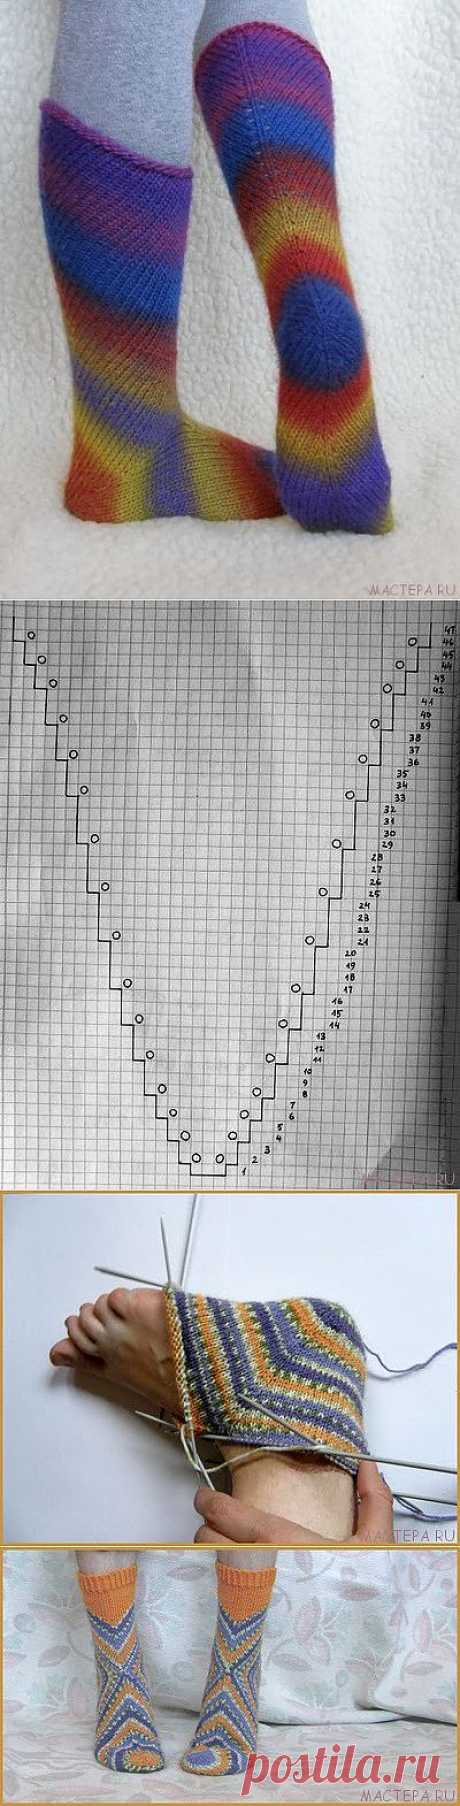 МАСТЕРА RU
47
46
45
44
43
42
41
40
39
38
37
36
35
34
33
32
31
30
29
28
27
26
25
24
23
22
21
20
19
18
17
16
15
14
13
12
11
10
9
8
7
6
5
4
3
2
1
МАСТЕРА RU
МАСТЕРА RU
postila.ru
МАСТЕРА RU